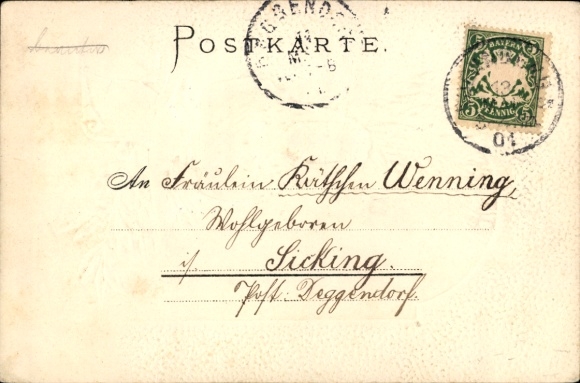 POSTKARTE.
DEGGENDORF
BAYERN
5 5
5 PFENNIG 5
01
An Fräulein Käthchen Wenning,
Wohlgeboren
in Sicking.
Post: Deggendorf.